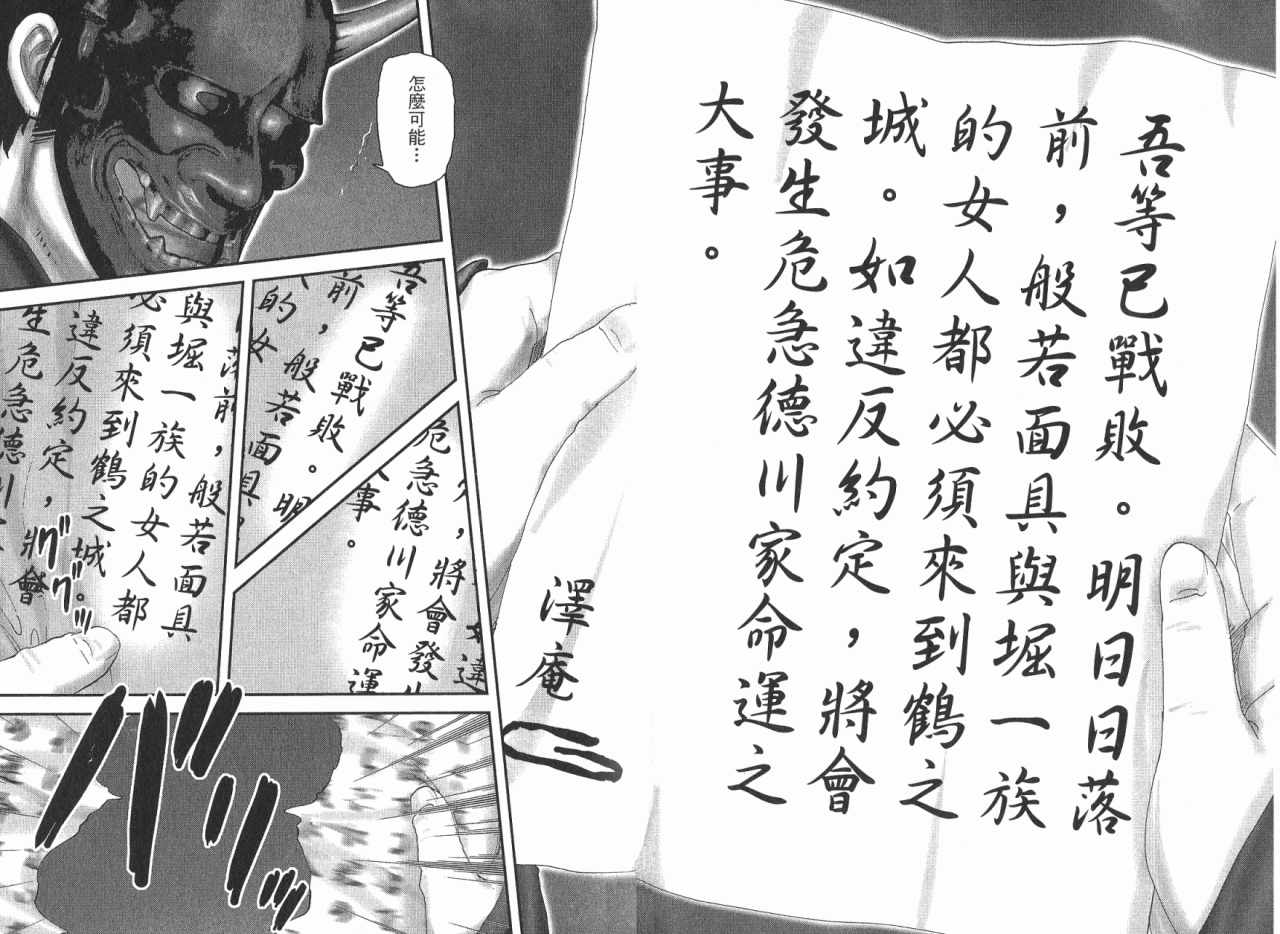 吾等已戰敗。明日日落
前，般若面具與堀一族
的女人都必須來到鶴之
城。如違反約定，將會
發生危急德川家命運之
大事。
澤庵
怎麼可能…
吾等已戰敗。明
前，般若面具
的女
如違
，將會發生
危急德川家命運
大事。
落前，般若面具
與堀一族的女人都
必須來到鶴之城。
違反約定，將會
生危急德川
グググッ